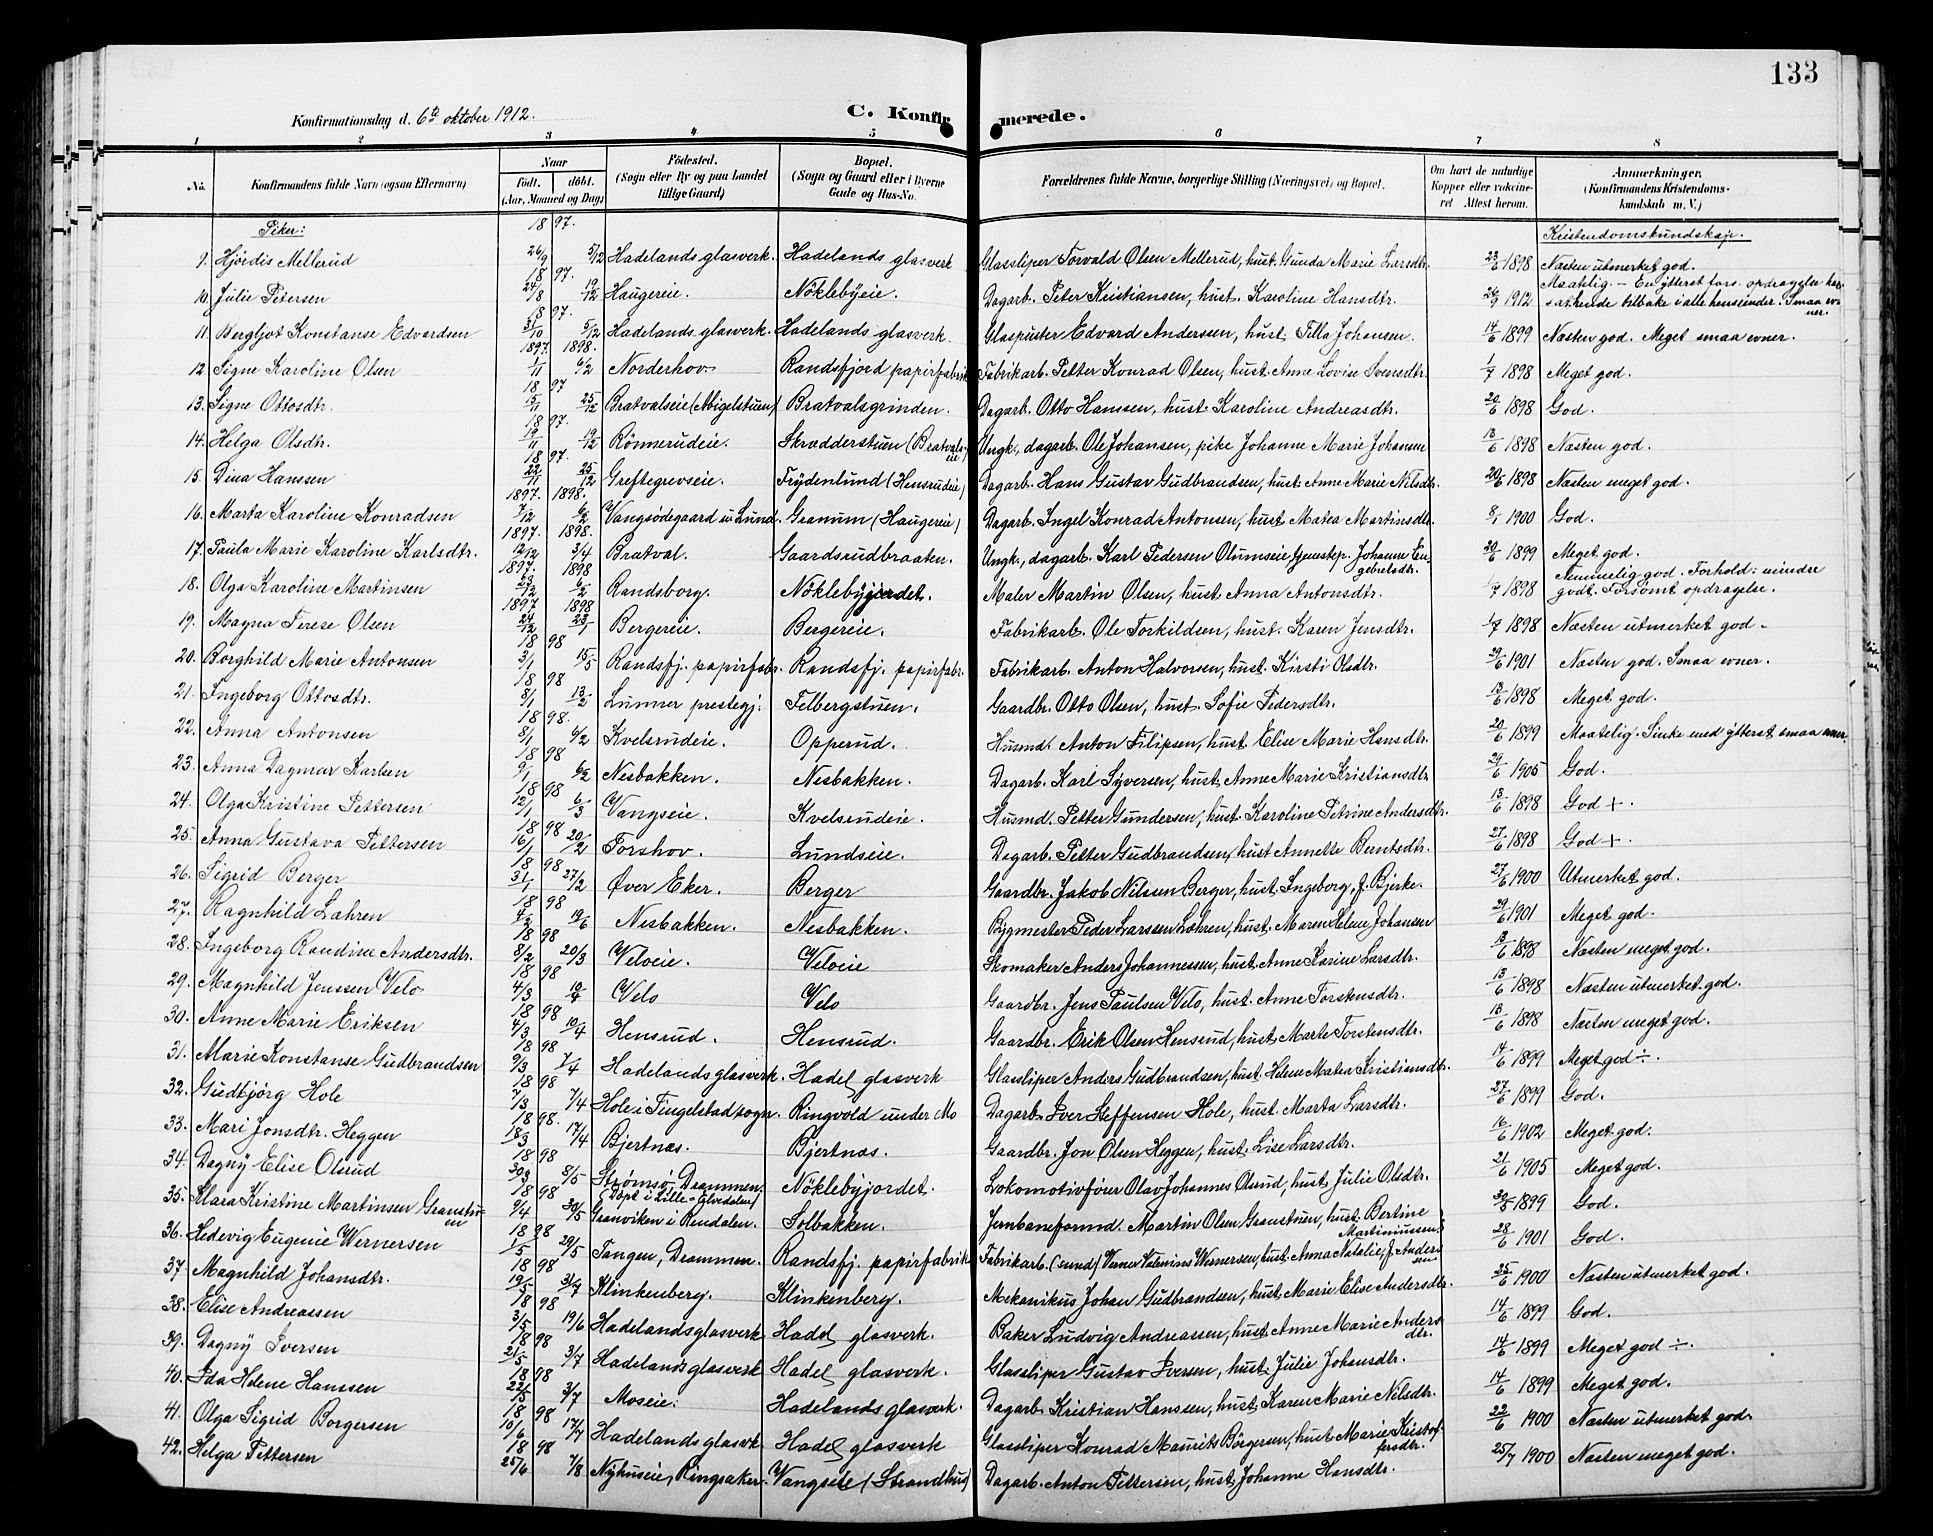 133
Konfirmationsdag d. 6te oktober 1912. C. Konfirmerede.
1 2 3 4 5 6 7 8
No. Konfirmandens fulde Navn (ogsaa Efternavn) Naar født. døbt. (Aar, Maaned og Dag) Fødested. (Sogn eller By og paa Landet tillige Gaard) Bopæl. (Sogn og Gaard eller i Byerne Gade og Hus-No. Forældrenes fulde Navne, borgerlige Stilling (Næringsvei) og Bopæl. Om havt de naturlige Kopper eller vakcineret Attest herom. Anmærkninger. (Konfirmandens Kristendomskundskab m. V.)
Piker: Kristendomskundskap.
9. Hjørdis Mellerud 1897 26/9 5/12 Hadelands glasverk. Hadelands glasverk Glassliper Torvald Olsen Mellerud, hust. Gunda Marie Larsdtr. 23/6 1898 Næsten utmerket god.
10. Julie Petersen 1897. 24/8 19/12 Haugereie. Nøklebyeie. Dagarb. Peter Kristiansen, hust. Karoline Hansdtr. 26/9 1912 Maatelig. – En ytterst fors. opdragelse tilbake i alle henseender. Smaa evner.
11. Bergljot Konstanse Edvardsen 1897. 31/10 5/12 Hadelands glasverk. Hadelands glasverk. Glaspuster Edvard Andersen, hust. Tilla Johansen. 14/6 1899 Næsten god. Meget smaa evner.
12 Signe Karoline Olsen 1897. 1898. 1/11 6/2 Norderhov Randsfjord papirfabrik Fabrikarb. Petter Konrad Olsen, hust. Anne Lovise Svensdtr. 1/7 1898 Meget god.
13. Signe Ottosdtr. 1897 15/11 25/12 Bratvalseie (Abigelstuen) Bratvalsgrinden. Dagarb. Otto Hanssen, hust. Karoline Andreasdtr. 20/6 1898 God.
14. Helga Olsdtr. 1897. 19/11 19/12 Rønnerudeie. Skrædderstuen (Bratvalseie) Ungk., dagarb. Ole Johansen, pike Johanne Marie Johansen 13/6 1898 Næsten god.
15. Dina Hanssen 1897. 22/11 25/12 Greftegrevseie. Frydenlund (Hensrudeie) Dagarb. Hans Gustav Gudbrandsen, hust. Anne Marie Nilsdtr. 20/6 1898 Næsten meget god.
16. Marta Karoline Konradsen 1897. 1898. 7/12 6/2 Vangsødegaard u. Lund. Granum (Haugereie) Dagarb. Ingel Konrad Antonsen, hust. Matea Martinsdtr. 8/1 1900 God.
17. Paula Marie Karoline Karlsdtr. 1897. 1898. 12/12 3/4 Bratval. Gaardsrudbraaten. Ungk., dagarb. Karl Pedersen Olumseie, Johanne Engebretsdtr. 20/6 1899 Meget god.
18. Olga Karoline Martinsen 1897. 1898 23/12 6/2 Randsborg. Nøklebyjordet. Maler Martin Olsen, hust. Anna Antonsdtr. 1/7 1898 Nemmelig god. Forhold: mindre godt. Forsømt opdragelse.
19. Magna Terese Olsen 1897 1898 24/12 23/1 Bergereie. Bergereie. Fabrikarb. Ole Torkildsen, hust. Karen Jensdtr. 1/7 1898 Næsten utmerket god.
20. Borghild Marie Antonsen 1898 3/1 15/5 Randsfj. papirfabr. Randsfj. papirfabr. Fabrikarb. Anton Halvorsen, hust. Kirsti Olsdtr. 29/6 1901 Næsten god. Smaa evner.
21. Ingeborg Ottosdtr. 1898 8/1 13/2 Lunner prestegj. Felbergstuen. Gaardbr. Otto Olsen, hust. Sofie Pedersdtr. 13/6 1898 Meget god.
22. Anna Antonsen 1898. 8/1 6/2 Kvelsrudeie. Opperud. Husmd. Anton Filipsen, hust. Elise Marie Hansdtr. 20/6 1899 Maatelig. Sinke med ytterst smaa evner.
23. Anna Dagmar Karlsen 1898 9/1 6/2 Nesbakken. Nesbakken. Dagarb. Karl Syversen, hust. Anne Marie Kristiansdtr 29/6 1905 God.
24. Olga Kristine Pettersen 1898 12/1 6/3 Vangseie. Kvelsrudeie. Husmd. Petter Gundersen, hust. Karoline Petrine Andersdtr. 13/6 1898 God +.
25. Anna Gustava Pettersen 1898 16/1 20/2 Torshov. Lundseie. Dagarb. Petter Gudbrandsen, hust Annette Berntsdtr. 27/6 1898 God +.
26. Sigrid Berger 1898 31/1 27/2 Øver Eker. Berger Gaardbr. Jakob Nilssen Berger, hust. Ingeborg, f. Bjerke. 27/6 1900 Utmerket god.
27. Ragnhild Læhren 1898 4/2 19/6 Nesbakken. Nesbakken. Bygmester Peder Larssen Læhren, hust. Maren Helene Johansen 29/6 1901 Meget god.
28. Ingeborg Randine Andersdtr. 1898 8/2 20/3 Veloeie. Veloeie Skomaker Anders Johannessen, hust. Anne Karine Larsdtr. 13/6 1898 Næsten meget god.
29. Magnhild Jenssen Velo 1898 4/3 10/4 Velo Velo Gaardbr. Jens Paulsen Velo, hust. Anne Torstensdtr. 13/6 1898 Næsten utmerket god.
30. Anne Marie Eriksen 1898 4/3 10/4 Hensrud. Hensrud. Gaardbr. Erik Olsen Hensrud, hust. Marte Torstensdtr. 13/6 1898 Næsten meget god.
31. Marie Konstanse Gudbrandsen 1898 9/3 7/4 Hadelands glasverk. Hadel. glasverk Glassliper Anders Gudbrandsen, hust. Helene Matea Kristiansdtr. 14/6 1899 Meget god ÷.
32. Gudbjørg Hole 1898 7/3 7/4 Hole i Tingelstad sogn. Ringvold under Mo Dagarb. Iver Steffensen Hole, hust. Marta Larsdtr. 27/6 1899 God.
33. Mari Jonsdtr. Heggen 1898. 18/3 17/4 Bjertnæs. Bjertnæs. Gaardbr. Jon Olsen Heggen, hust. Lise Larsdtr. 16/6 1902 Meget god.
34. Dagny Elise Olsrud 1898 30/3 8/5 Strømsø, Drammen. (Døpt i Lille-Elvedalen) Nøklebyjordet. Lokomotivfører Olav Johannes Olsrud, hust. Julie Olsdtr. 21/6 1905 Meget god.
35. Klara Kristine Martinsen Granstuen 1898 9/4 30/5 Granviken i Rendalen. Solbakken. Jernbaneformd. Martin Olsen Granstuen, hust. Bertine Martiniussen. 30/5 1899 God.
36. Hedevig Eugenie Wernersen 1898 1/5 29/5 Tangen, Drammen. Randsfj. papirfabrik Fabrikarb. Verner Wernersen, hust. Anna Natalie, f. Andersen 28/6 1901 God.
37. Magnhild Johansdtr. 1898 19/5 3/7 Klinkenberg. Klinkenberg. Mekanikus Johan Gudbrandsen, hust. Marie Elise Andersdtr. 25/6 1900 Næsten utmerket god.
38. Elise Andreassen 1898 3/5 19/6 Hadelands glasverk Hadel. glasverk. Baker Ludvig Andreassen, hust. Anne Marie Andersdtr. 14/6 1899 God.
39. Dagny Iversen 1898 21/5 3/7 Hadelands glasverk Hadel. glasverk. Glassliper Gustav Iversen, hust. Julie Johansdtr. 14/6 1899 Meget god ÷.
40. Ida Helene Hanssen 1898 22/5 3/7 Moseie. Hadelands glasverk. Dagarb. Kristian Hanssen, hust. Karen Marie Nilsdtr. 14/6 1899 Meget god.
41. Olga Sigrid Borgersen 1898 10/6 17/7 Hadelands glasvk Hadel. glasverk Glassliper Konrad Maurits Børgersen, hust. Marie Kristoffersdtr. 22/6 1900 Næsten utmerket god.
42. Helga Pettersen 1898 25/6 7/8 Nyhuseie, Ringsaker. Vangseie (Strandhus) Dagarb. Anton Pettersen, hust. Johanne Hansdtr. 25/7 1900 Næsten meget god.